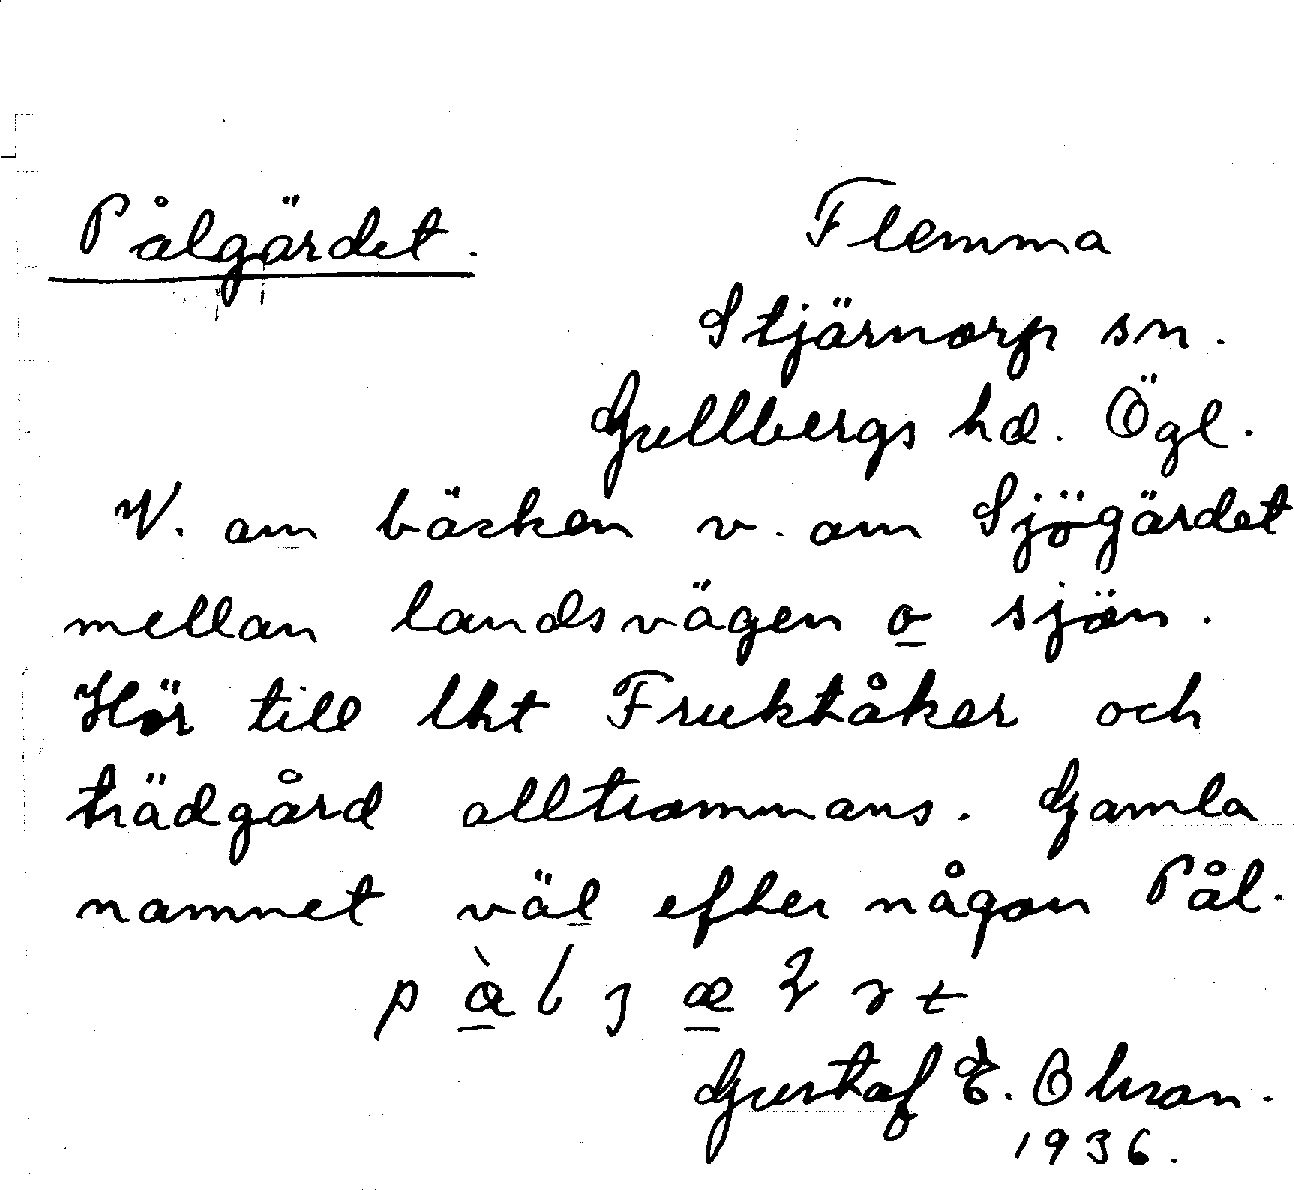 Pålgärdet.
Flemma
Stjärnorp sn.
Gullbergs hd. Ögl.
V. om bäcken v. om Sjögärdet
mellan landsvägen o sjön.
Hör till lht Fruktåker och
trädgård alltsammans. Gamla
namnet väl efter någon Pål.
Gustaf E. Olsson.
1936.